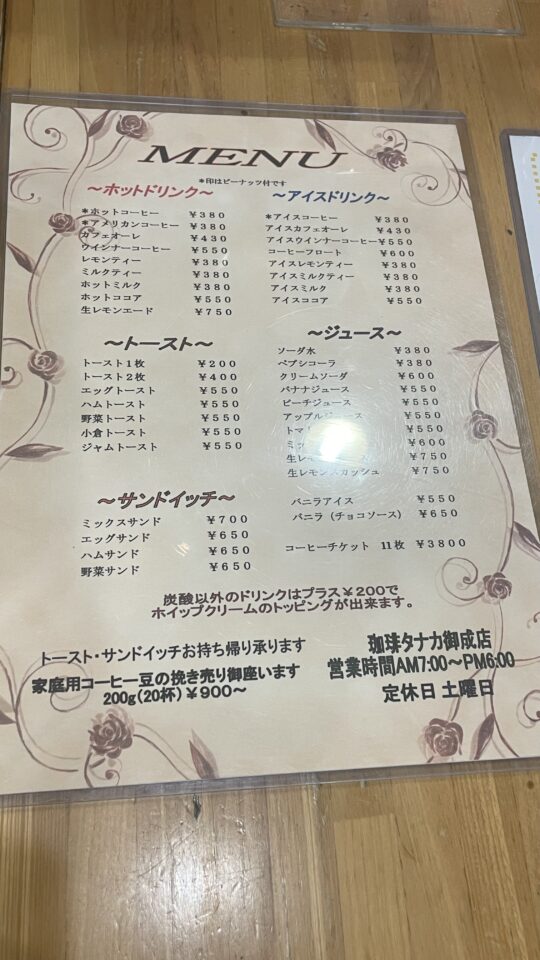 MENU
*印はピーナッツ付です
～ホットドリンク～
*ホットコーヒー ￥380
*アメリカンコーヒー ￥380
カフェオーレ ￥430
ウインナーコーヒー ￥550
レモンティー ￥380
ミルクティー ￥380
ホットミルク ￥380
ホットココア ￥550
生レモンエード ￥750
～アイスドリンク～
*アイスコーヒー ￥380
アイスカフェオーレ ￥430
アイスウインナーコーヒー ￥550
コーヒーフロート ￥600
アイスレモンティー ￥380
アイスミルクティー ￥380
アイスミルク ￥380
アイスココア ￥550
～トースト～
トースト1枚 ￥200
トースト2枚 ￥400
エッグトースト ￥550
ハムトースト ￥550
野菜トースト ￥550
小倉トースト ￥550
ジャムトースト ￥550
～ジュース～
ソーダ水 ￥380
ペプシコーラ ￥380
クリームソーダ ￥600
バナナジュース ￥550
ピーチジュース ￥550
アップルジュース ￥550
￥550
￥600
￥750
生レモンスカッシュ ￥750
～サンドイッチ～
ミックスサンド ￥700
エッグサンド ￥650
ハムサンド ￥650
野菜サンド ￥650
バニラアイス ￥550
バニラ（チョコソース） ￥650
コーヒーチケット 11枚 ￥3800
炭酸以外のドリンクはプラス￥200で
ホイップクリームのトッピングが出来ます。
トースト・サンドイッチお持ち帰り承ります
家庭用コーヒー豆の挽き売り御座います
200g(20杯)￥900～
珈琲タナカ御成店
営業時間AM7:00～PM6:00
定休日 土曜日